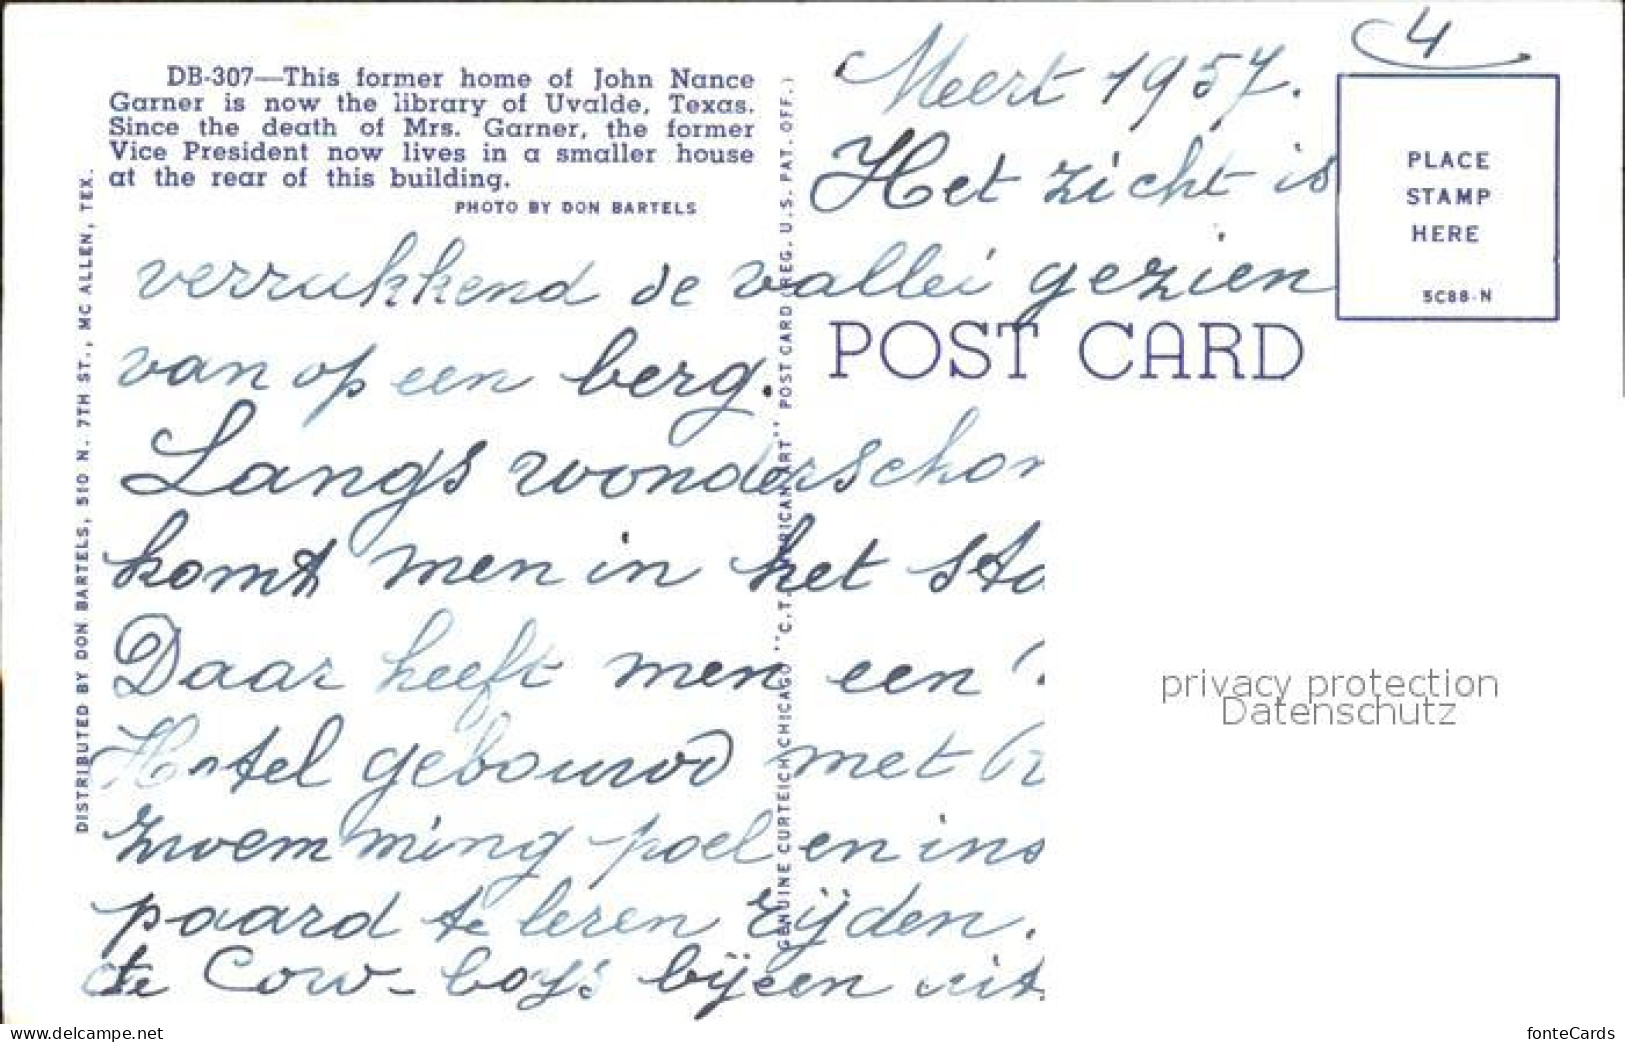 4
DB-307—This former home of John Nance
Garner is now the library of Uvalde, Texas.
Since the death of Mrs. Garner, the former
Vice President now lives in a smaller house
at the rear of this building.
PHOTO BY DON BARTELS
DISTRIBUTED BY DON BARTELS, 510 N. 7TH ST., MC ALLEN, TEX.
GENUINE CURTEICH-CHICAGO "C.T. AMERICAN ART" POST CARD (REG. U.S. PAT. OFF.)
PLACE
STAMP
HERE
5C88-N
POST CARD
Meert 1957.
Het zicht is
verrukkend de vallei gezien
van op een berg.
Langs wonderschon
komt men in het sta
Daar heeft men een
Hotel gebouwd met
zwemming-poel en ins
paard te leren rijden.
de Cow-boy's bijeen uit
privacy protection
Datenschutz
www.delcampe.net
fonteCards